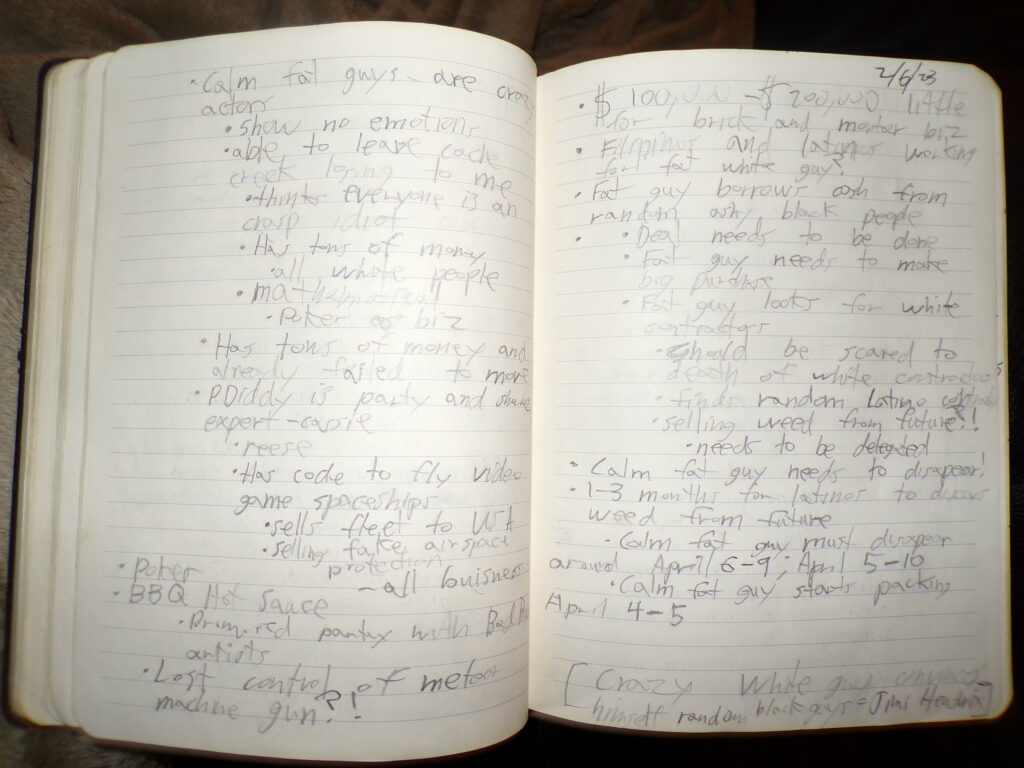 • Calm fat guys - are crazy
actors
• show no emotions
• able to leave cache
creek losing to me
• thinks everyone is an
idiot
• Has tons of money
• all white people
• mathematical
• Poker as biz
• Has tons of money and
already failed to move
• PDiddy is party and
expert - cassie
• reese
• Has code to fly video
game spaceships
• sells fleet to USA
• selling fake airspace
protection
• Poker - all buisness
• BBQ Hot Sauce
• party with Bad
artists
• Lost control of meteor
machine gun?!
2/6/23
• $100,000 - $200,000 little
for brick and morter biz
• Filipinos and latinos working
for fat white guy?
• Fat guy borrows cash from
random ashy black people
• • Deal needs to be done
• Fat guy needs to make
big purchase
• Fat guy looks for white
contractors
• should be scared to
death of white contractors
• finds random Latino
• selling weed from future?!
• needs to be delegated
• Calm fat guy needs to disapear!
• 1-3 months for latinos to
weed from future
• Calm fat guy must disapear
around April 6-9, April 5-10
• Calm fat guy starts packing
April 4-5
[Crazy White guy convinces
himself random black guys = Jimi Hendrix]